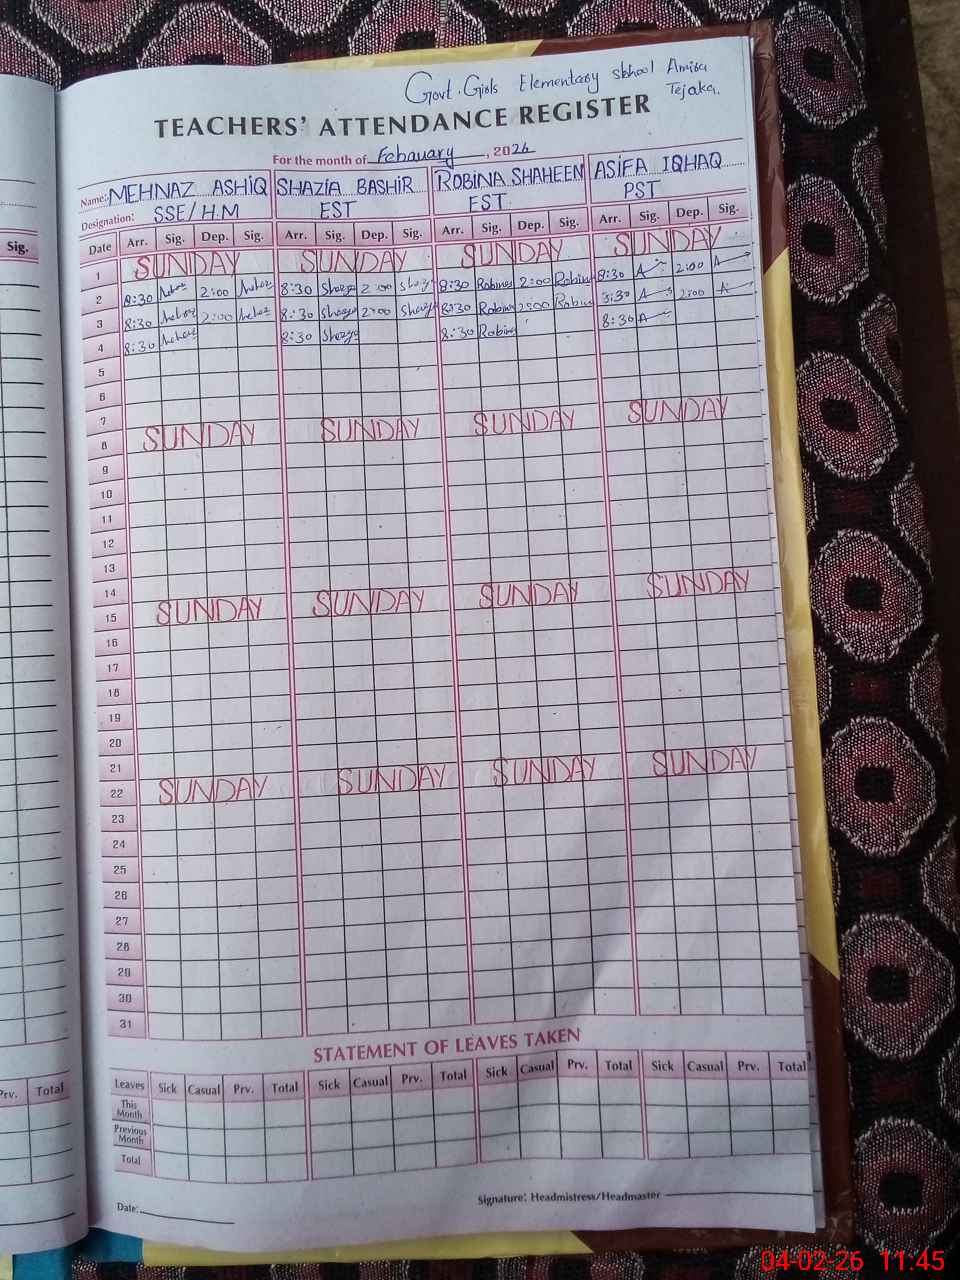 Govt. Girls Elementary sbhool Amira
Tejaka.
TEACHERS' ATTENDANCE REGISTER
For the month of Febauary, 2026
Name: MEHNAZ ASHIQ SHAZIA BASHIR ROBINA SHAHEEN ASIFA IQHAQ
Designation: SSE/H.M EST EST PST
Sig. Date Arr. Sig. Dep. Sig. Arr. Sig. Dep. Sig. Arr. Sig. Dep. Sig. Arr. Sig. Dep. Sig.
1 SUNDAY SUNDAY SUNDAY SUNDAY
2 8:30 2:00 8:30 2:00 8:30 Robina 2:00 Robina 8:30 2:00
3 8:30 2:00 8:30 2:00 8:30 Robina 2:00 Robina 8:30 2:00
4 8:30 8:30 8:30 Robina 8:30
5
6
7
8 SUNDAY SUNDAY SUNDAY SUNDAY
9
10
11
12
13
14
15 SUNDAY SUNDAY SUNDAY SUNDAY
16
17
18
19
20
21
22 SUNDAY SUNDAY SUNDAY SUNDAY
23
24
25
26
27
28
29
30
31
STATEMENT OF LEAVES TAKEN
Prv. Total Leaves Sick Casual Prv. Total Sick Casual Prv. Total Sick Casual Prv. Total Sick Casual Prv. Total
This Month
Previous Month
Total
Date: Signature: Headmistress/Headmaster
04-02-26 11:45